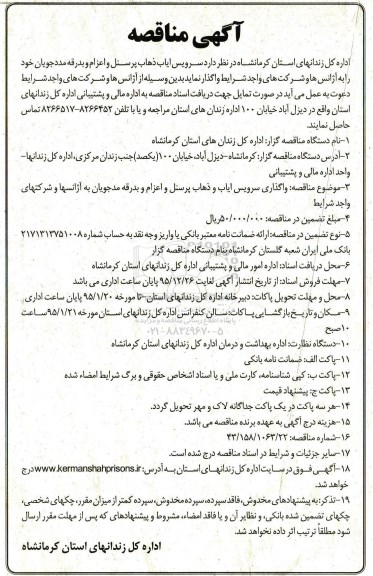 آگهی مناقصه
اداره کل زندانهای استان کرمانشاه در نظر دارد سرویس ایاب ذهاب پرسنل و اعزام و بدرقه مددجویان خود
را به آژانس ها و شرکت های واجد شرایط واگذار نماید بدین وسیله از آژانس ها و شرکت های واجد شرایط
دعوت به عمل می آید در صورت تمایل جهت دریافت اسناد مناقصه به اداره مالی و پشتیبانی اداره کل زندانهای
استان واقع در دیزل آباد خیابان ۱۰۰ اداره زندان های استان مراجعه و یا با تلفن ۸۲۶۶۴۵۲-۸۲۶۶۵۱۷ تماس
حاصل نمایند.
۱-نام دستگاه مناقصه گزار: اداره کل زندان های استان کرمانشاه
۲-آدرس دستگاه مناقصه گزار: کرمانشاه-دیزل آباد، خیابان ۱۰۰(یکصد)جنب زندان مرکزی، اداره کل زندانها-
واحد اداره مالی و پشتیبانی
۳-موضوع مناقصه: واگذاری سرویس ایاب و ذهاب پرسنل و اعزام و بدرقه مددجویان به آژانسها و شرکتهای
واجد شرایط
۴-مبلغ تضمین در مناقصه: ۵۰/۰۰۰/۰۰۰ریال
۵-نوع تضمین در مناقصه: ارائه ضمانت نامه معتبر بانکی یا واریز وجه نقد به حساب شماره ۲۱۷۱۳۱۳۷۵۱۰۰۸
بانک ملی ایران شعبه گلستان کرمانشاه بنام دستگاه مناقصه گزار
۶-محل دریافت اسناد: اداره امور مالی و پشتیبانی اداره کل زندانهای استان کرمانشاه
۷-مهلت فروش اسناد: از تاریخ انتشار آگهی لغایت ۹۵/۱۲/۲۶ پایان ساعت اداری می باشد
۸-محل و مهلت تحویل پاکات: دبیرخانه اداره کل زندانهای استان-تا مورخه ۹۵/۱/۲۰ پایان ساعت اداری
۹-مکان و تاریخ بازگشایی پاکات: سالن کنفرانس اداره کل زندانهای استان مورخه ۹۵/۱/۲۱ساعت
۱۰صبح
۱۰-دستگاه نظارت: اداره بهداشت و درمان اداره کل زندانهای استان کرمانشاه
۱۱-پاکت الف: ضمانت نامه بانکی
۱۲-پاکت ب: کپی شناسنامه، کارت ملی و یا اسناد اشخاص حقوقی و برگ شرایط امضاء شده
۱۳-پاکت ج: پیشنهاد قیمت
۱۴-هر سه پاکت در یک پاکت جداگانه لاک و مهر تحویل گردد.
۱۵-هزینه درج آگهی به عهده برنده مناقصه می باشد.
۱۶-شماره مناقصه: ۴۳/۱۵۸/۱۰۶۳/۲۲
۱۷-سایر جزئیات و شرایط در اسناد مناقصه درج شده است.
۱۸-آگهی فوق در سایت اداره کل زندانهای استان به آدرس: www.kermanshahprisons.ir درج
خواهد شد.
۱۹-تذکر: به پیشنهادهای مخدوش، فاقد سپرده، سپرده مخدوش، سپرده کمتر از میزان مقرر، چکهای شخصی،
چکهای تضمین شده بانکی، و نظایر آن و یا فاقد امضاء، مشروط و پیشنهادهای که پس از مهلت مقرر ارسال
شود مطلقاً ترتیب اثر داده نخواهد شد.
اداره کل زندانهای استان کرمانشاه